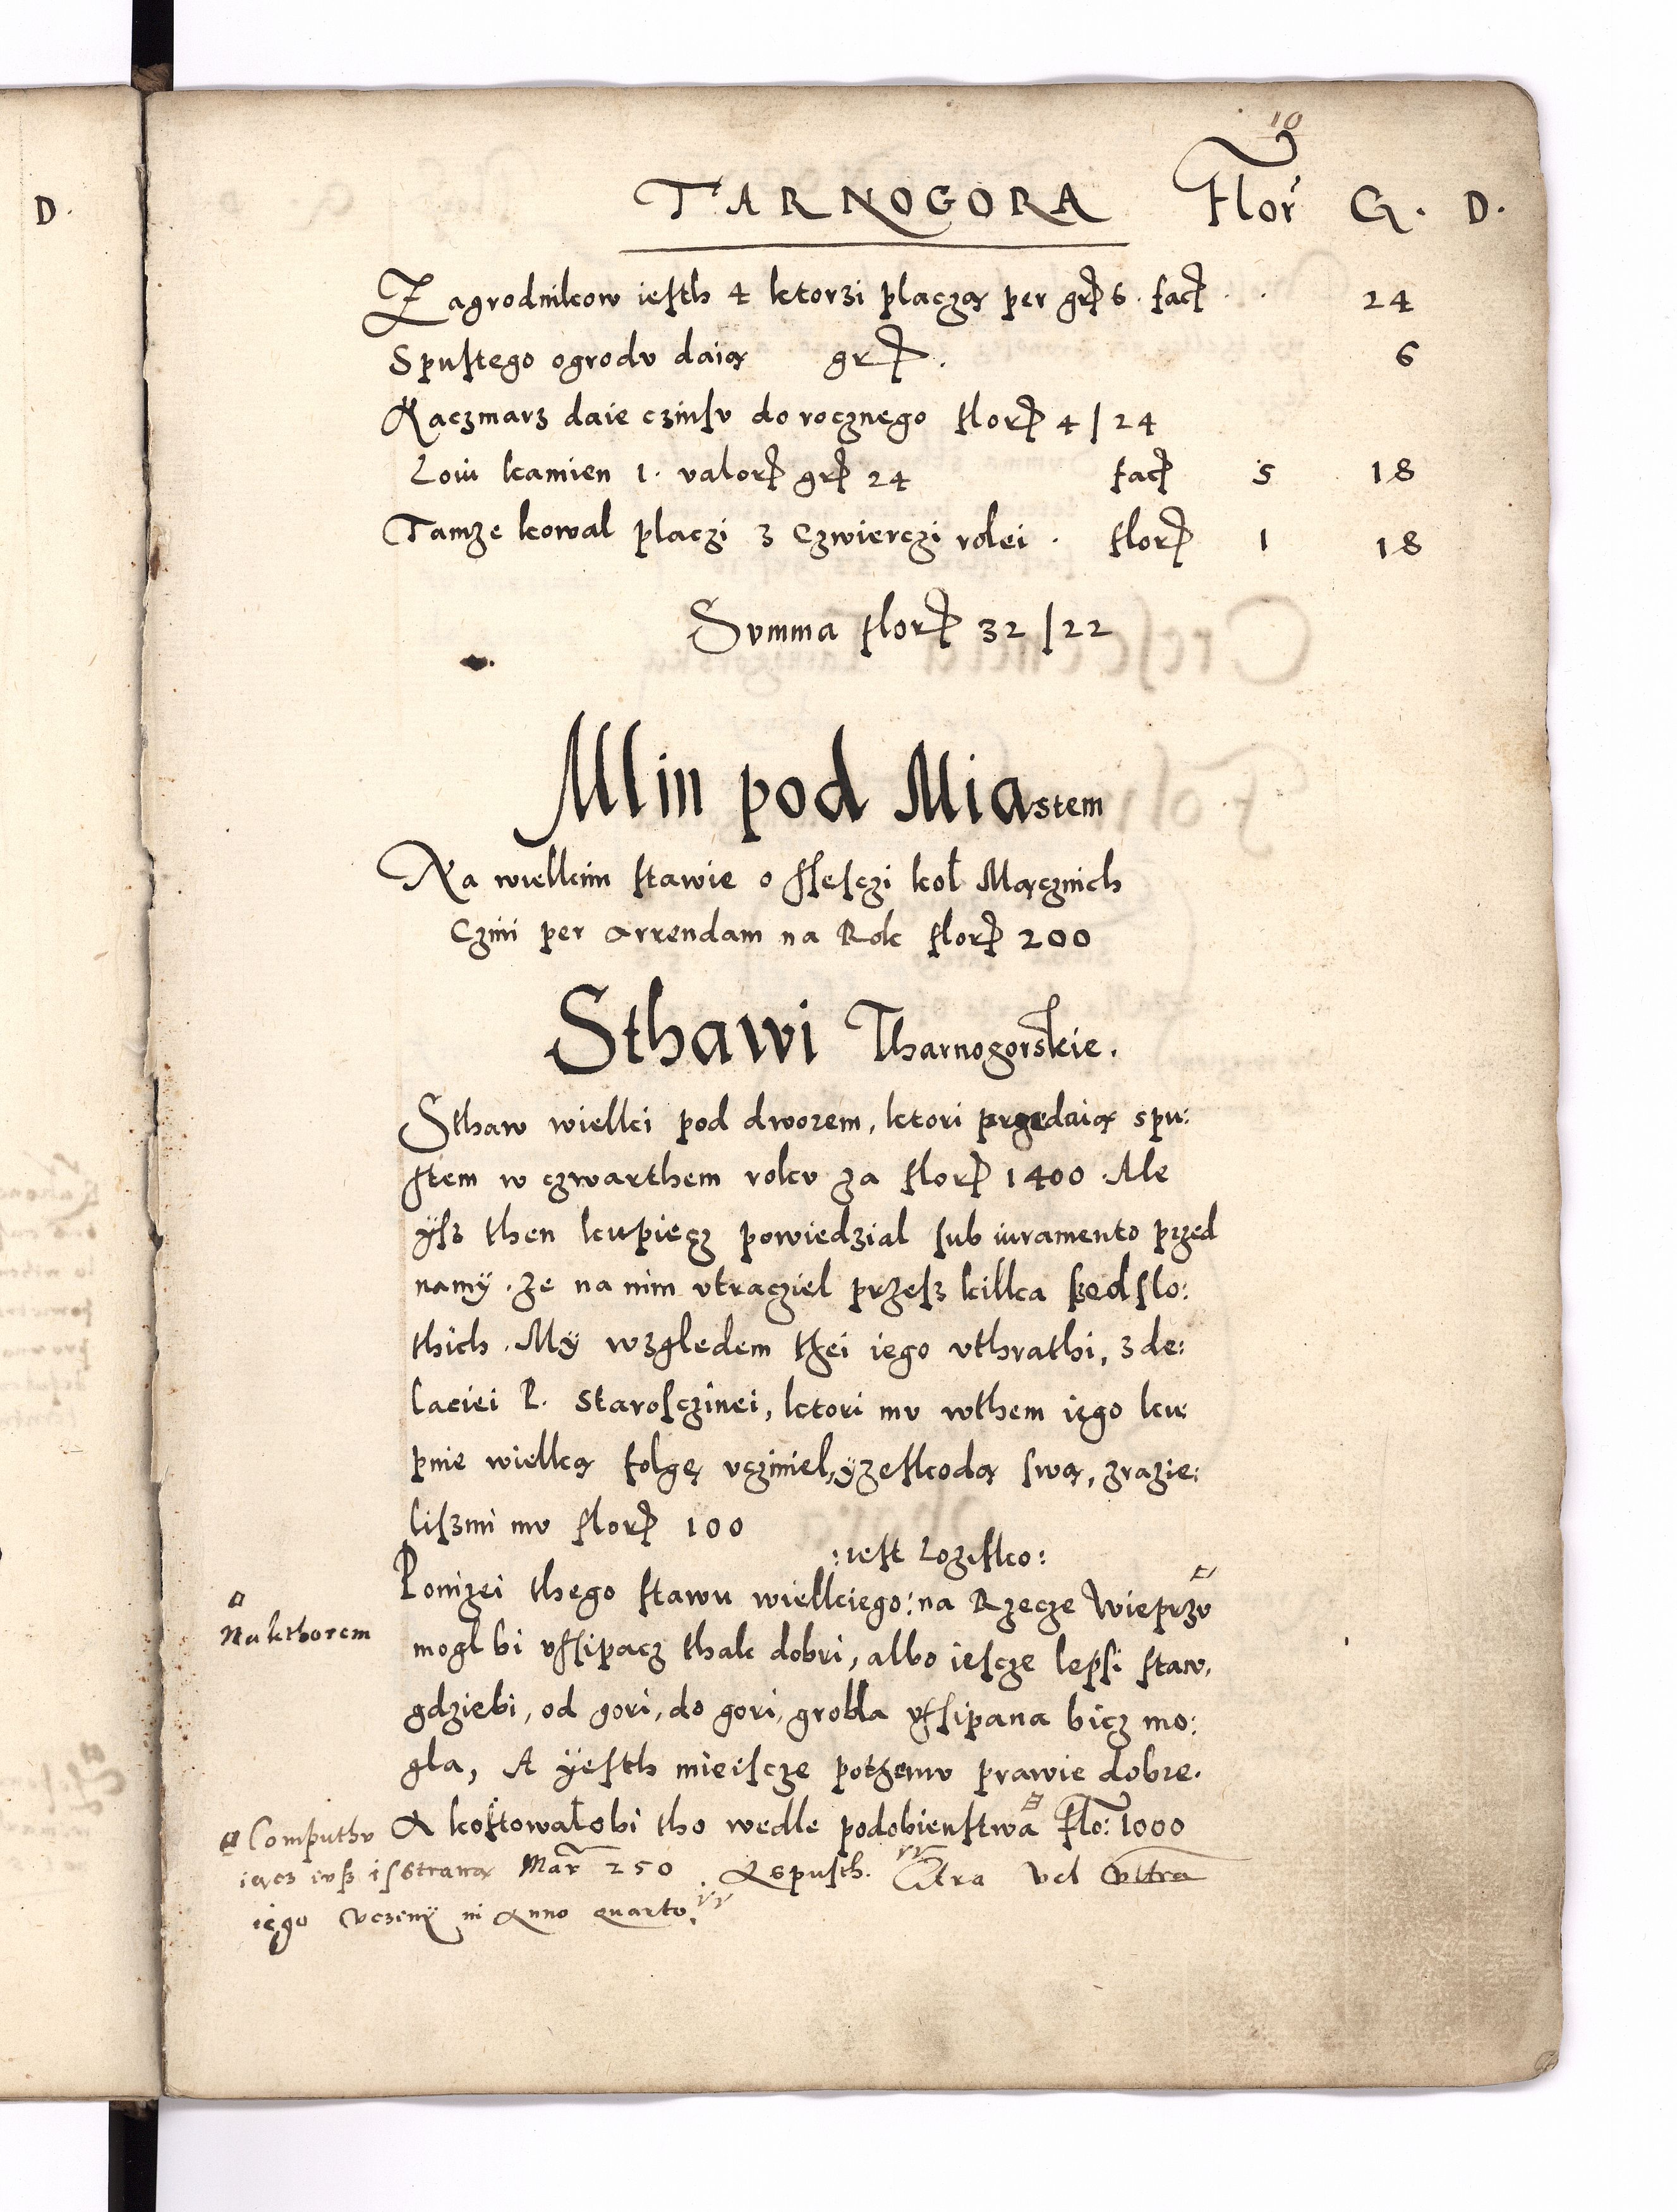 D.
10
TARNOGORA Flor G. D.
Zagrodnikow iesth 4 ktorzi placzą per gr 6. fac . . 24
Spustego ogrodv daią gr. 6
Kaczmarz daie czinsv do rocznego flor 4 | 24
Loiu kamien 1. valor gr 24 fac 5 18
Tamze kowal placzi 3 Czwierczi rolei . flor 1 18
Svmma flor 32 | 22
Mlin pod Miastem
Na wielkim stawie o ssesczi kol Mącznich
Czini per arrendam na Rok flor 200
Sthawi Tharnogorskie.
Sthaw wielki pod dworem, ktori przedaią spu:
stem w czwarthem rokv za flor 1400 . Ale
ÿsz then kupiecz powiedzial sub iuramento przed
namÿ . ze na nim vtracziel przesz kilka szed slo:
thich . Mÿ wzgledem thei iego vthrathi, z de:
laciei P. Starosczinei, ktori mv wthem iego ku
pnie wielką folgę vcziniel, ÿ ze skodą swą, zrazie:
liszmi mv flor 100
:iest Lozisko:
Ponizei thego stawu wielkiego: na Rzecze Wieprzv
Na kthorem
mogl bi vssipacz thak dobri, albo iescze lepsi staw,
gdziebi, od gori, do gori, grobla vssipana bicz mo:
gla, A ÿesth mieiscze pothemv prawie dobre.
A kosztowalobi tho wedle podobienstwa Flo: 1000
Computhv
Mar 250 . A spusth. Citra vel vltra
iego vczinÿ in Anno quarto.